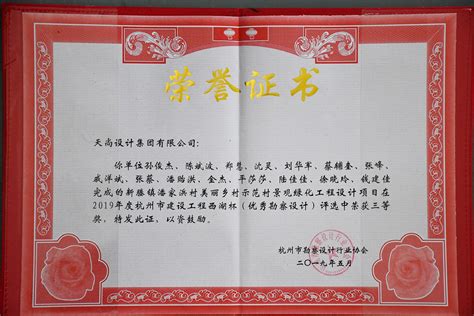 荣誉证书
天尚设计集团有限公司:
你单位孙俊杰、陈斌波、郑慧、沈昊、刘华军、蔡辅奎、张峰、
戚洋斌、张蔡、潘贻洪、金杰、平莎莎、陆佳佳、徐晓玲、钱建佳
完成的新塍镇潘家浜村美丽乡村示范村景观绿化工程设计项目在
2019年度杭州市建设工程西湖杯(优秀勘察设计)评选中荣获三等
奖,特发此证,以资鼓励。
杭州市勘察设计行业协会
二〇一九年五月